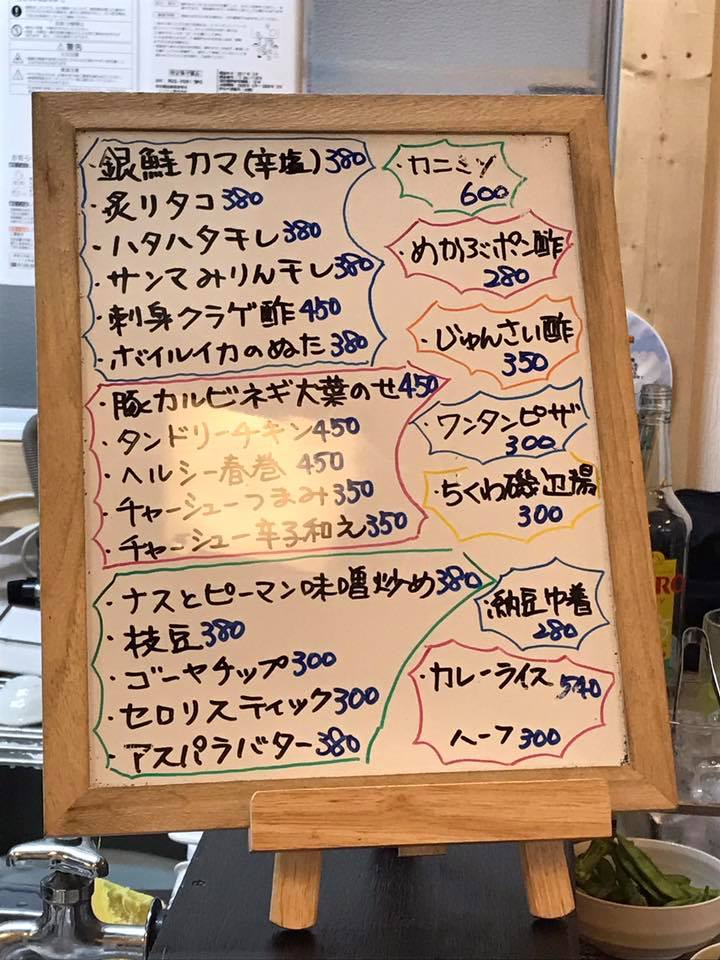 警告
・銀鮭カマ(辛塩)380
・炙リタコ380
・ハタハタ干し380
・サンマみりん干し380
・刺身クラゲ酢450
・ボイルイカのぬた380
・豚カルビネギ大葉のせ450
・タンドリーチキン450
・ヘルシー春巻450
・チャーシューつまみ350
・チャーシュー辛子和え350
・ナスとピーマン味噌炒め380
・枝豆380
・ゴーヤチップ300
・セロリスティック300
・アスパラバター380
・カニミソ
600
・めかぶポン酢
280
・じゅんさい酢
350
・ワンタンピザ
300
・ちくわ磯辺揚
300
・納豆巾着
280
・カレーライス540
ハーフ300